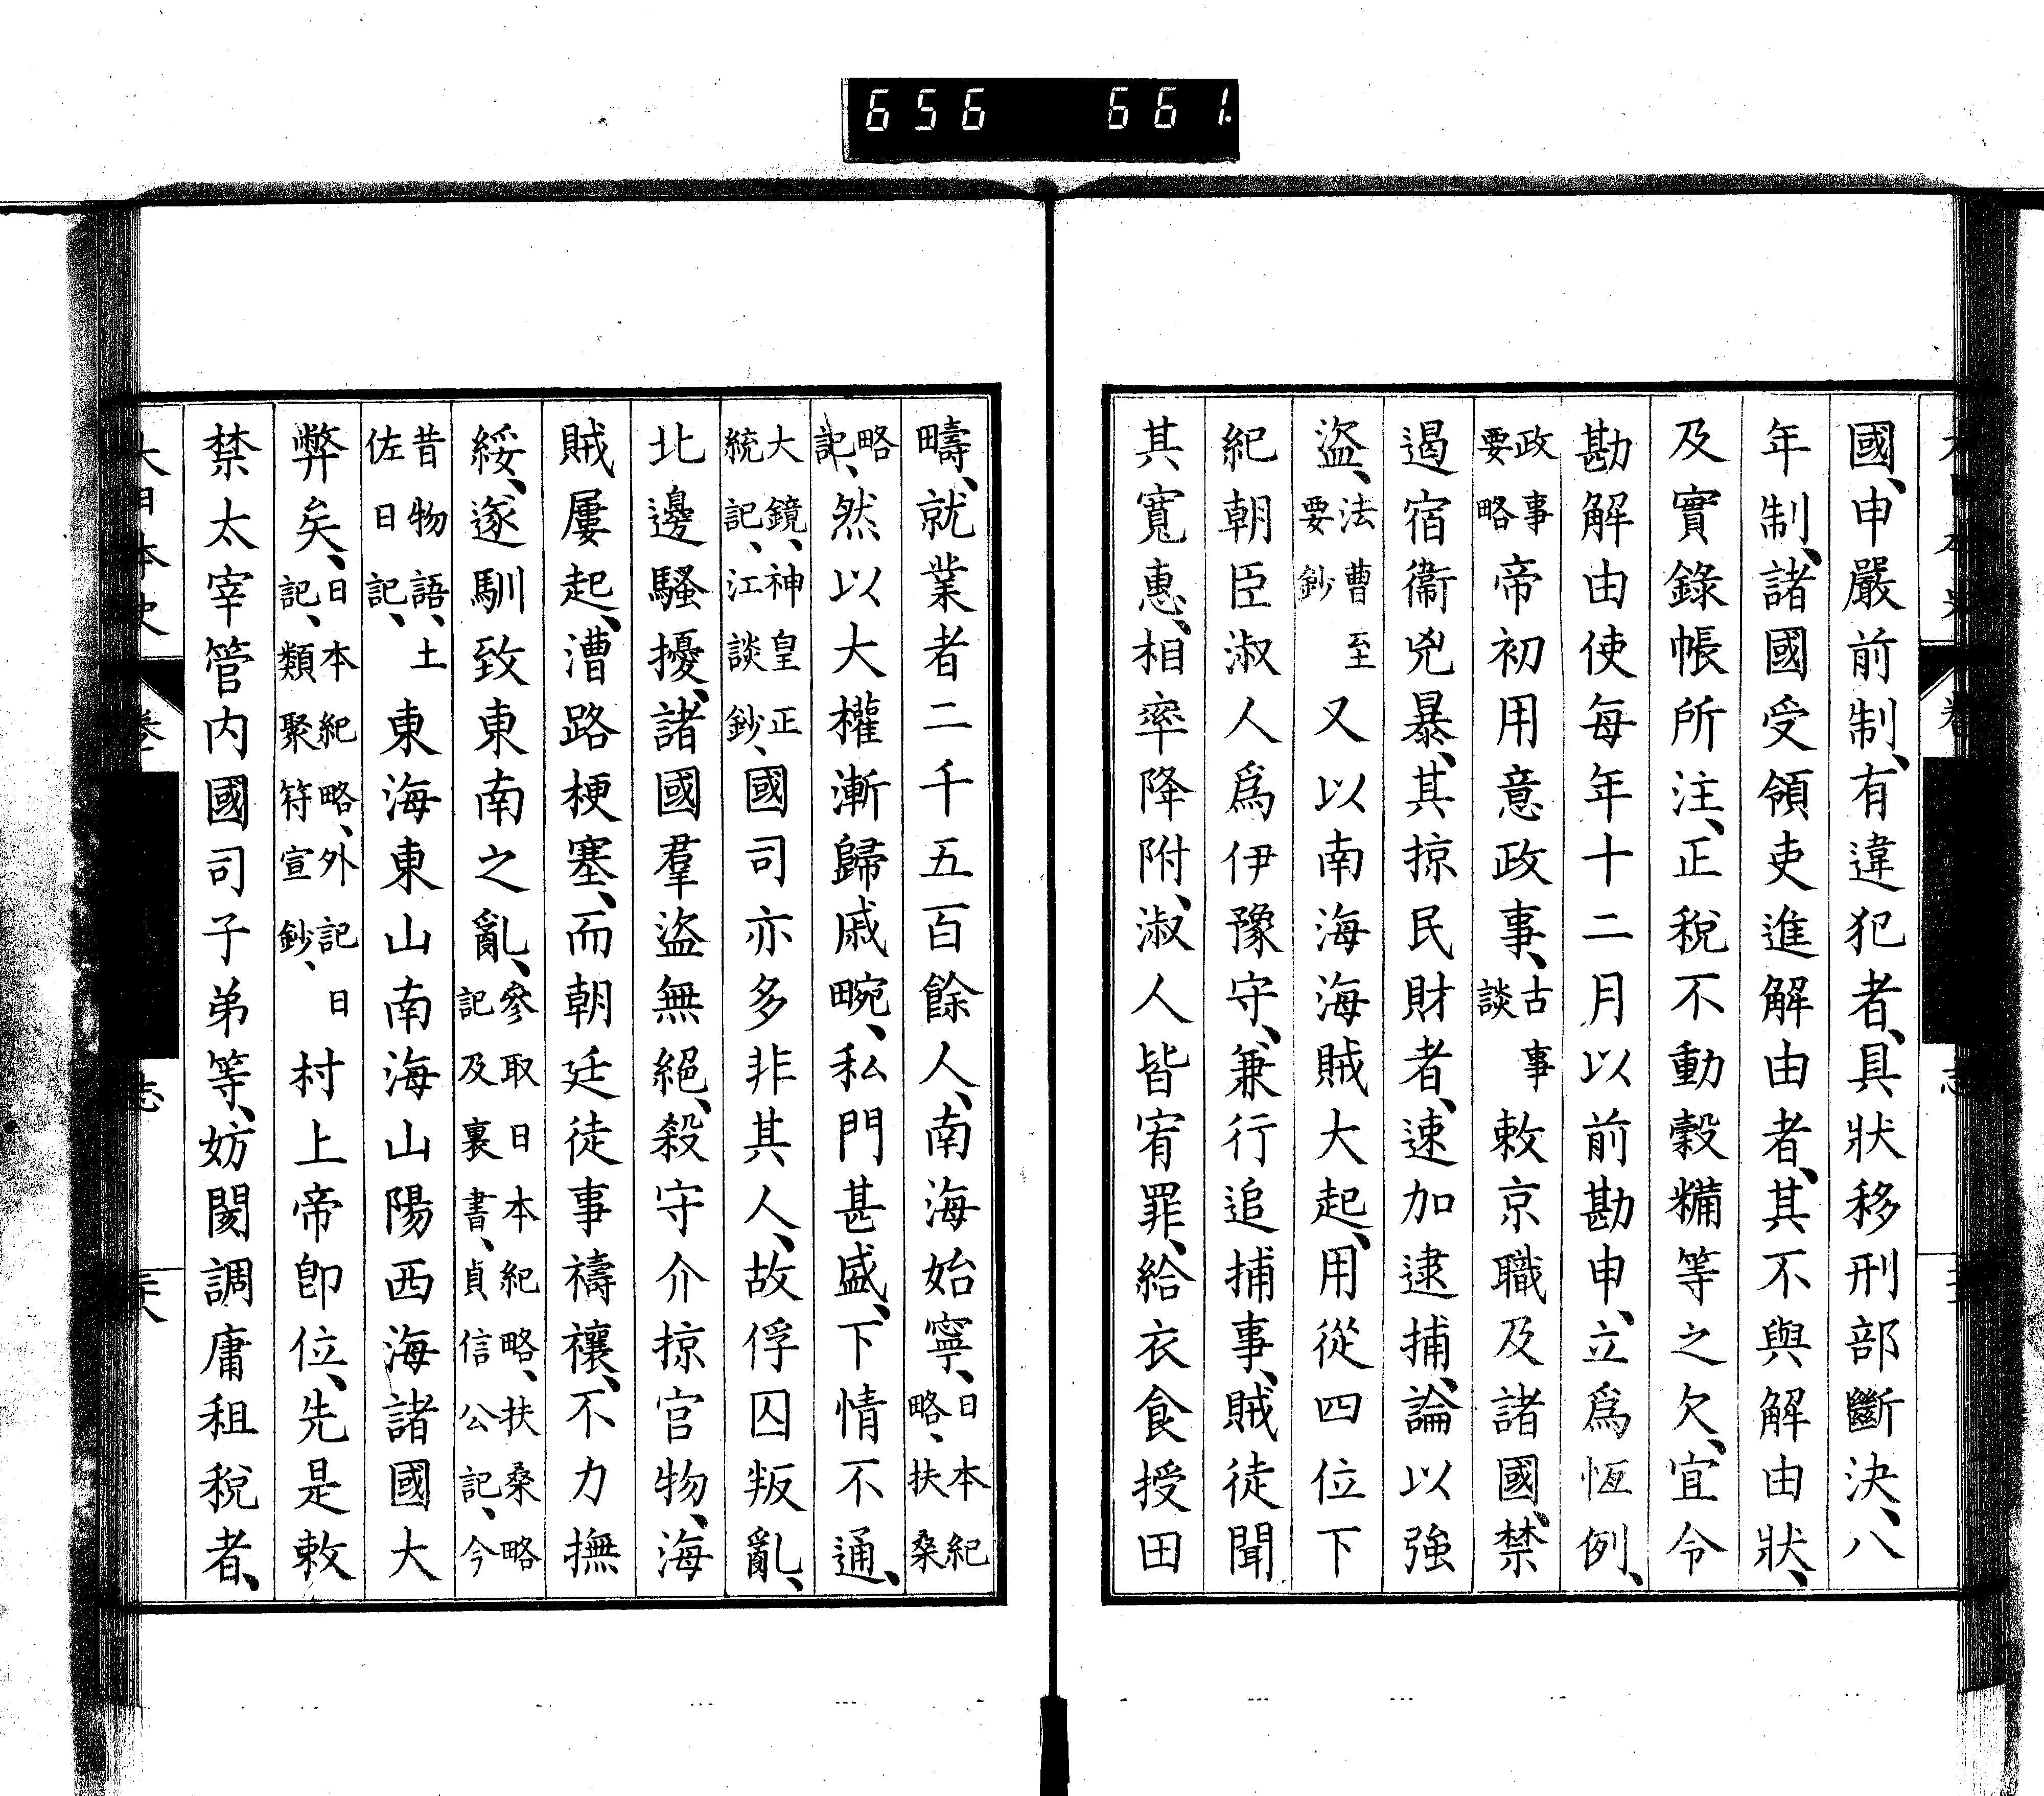 656 661.
國、申嚴前制、有違犯者、具狀移刑部斷決、八
年制、諸國受領吏進解由者、其不與解由狀、
及實錄帳所注、正稅不動穀糒等之欠、宜令
勘解由使每年十二月以前勘申、立爲恆例、
政事要略帝初用意政事、古事談敕京職及諸國、禁
遏宿衞兇暴、其掠民財者、速加逮捕、論以強
盜、法曹至要鈔又以南海海賊大起、用從四位下
紀朝臣淑人爲伊豫守、兼行追捕事、賊徒聞
其寬惠、相率降附、淑人皆宥罪、給衣食授田
疇、就業者二千五百餘人、南海始寧、日本紀略、扶桑
略記、然以大權漸歸戚畹、私門甚盛、下情不通、
大鏡、神皇正統記、江談鈔、國司亦多非其人、故俘囚叛亂、
北邊騷擾、諸國羣盜無絕、殺守介掠官物、海
賊屢起、漕路梗塞、而朝廷徒事禱禳、不力撫
綏、遂馴致東南之亂、參取日本紀略、扶桑略記及裏書、貞信公記、今
昔物語、土佐日記、東海東山南海山陽西海諸國大
弊矣、日本紀略、外記日記、類聚符宣鈔、村上帝卽位、先是敕
禁太宰管內國司子弟等、妨閡調庸租稅者、
大日本史 卷 志